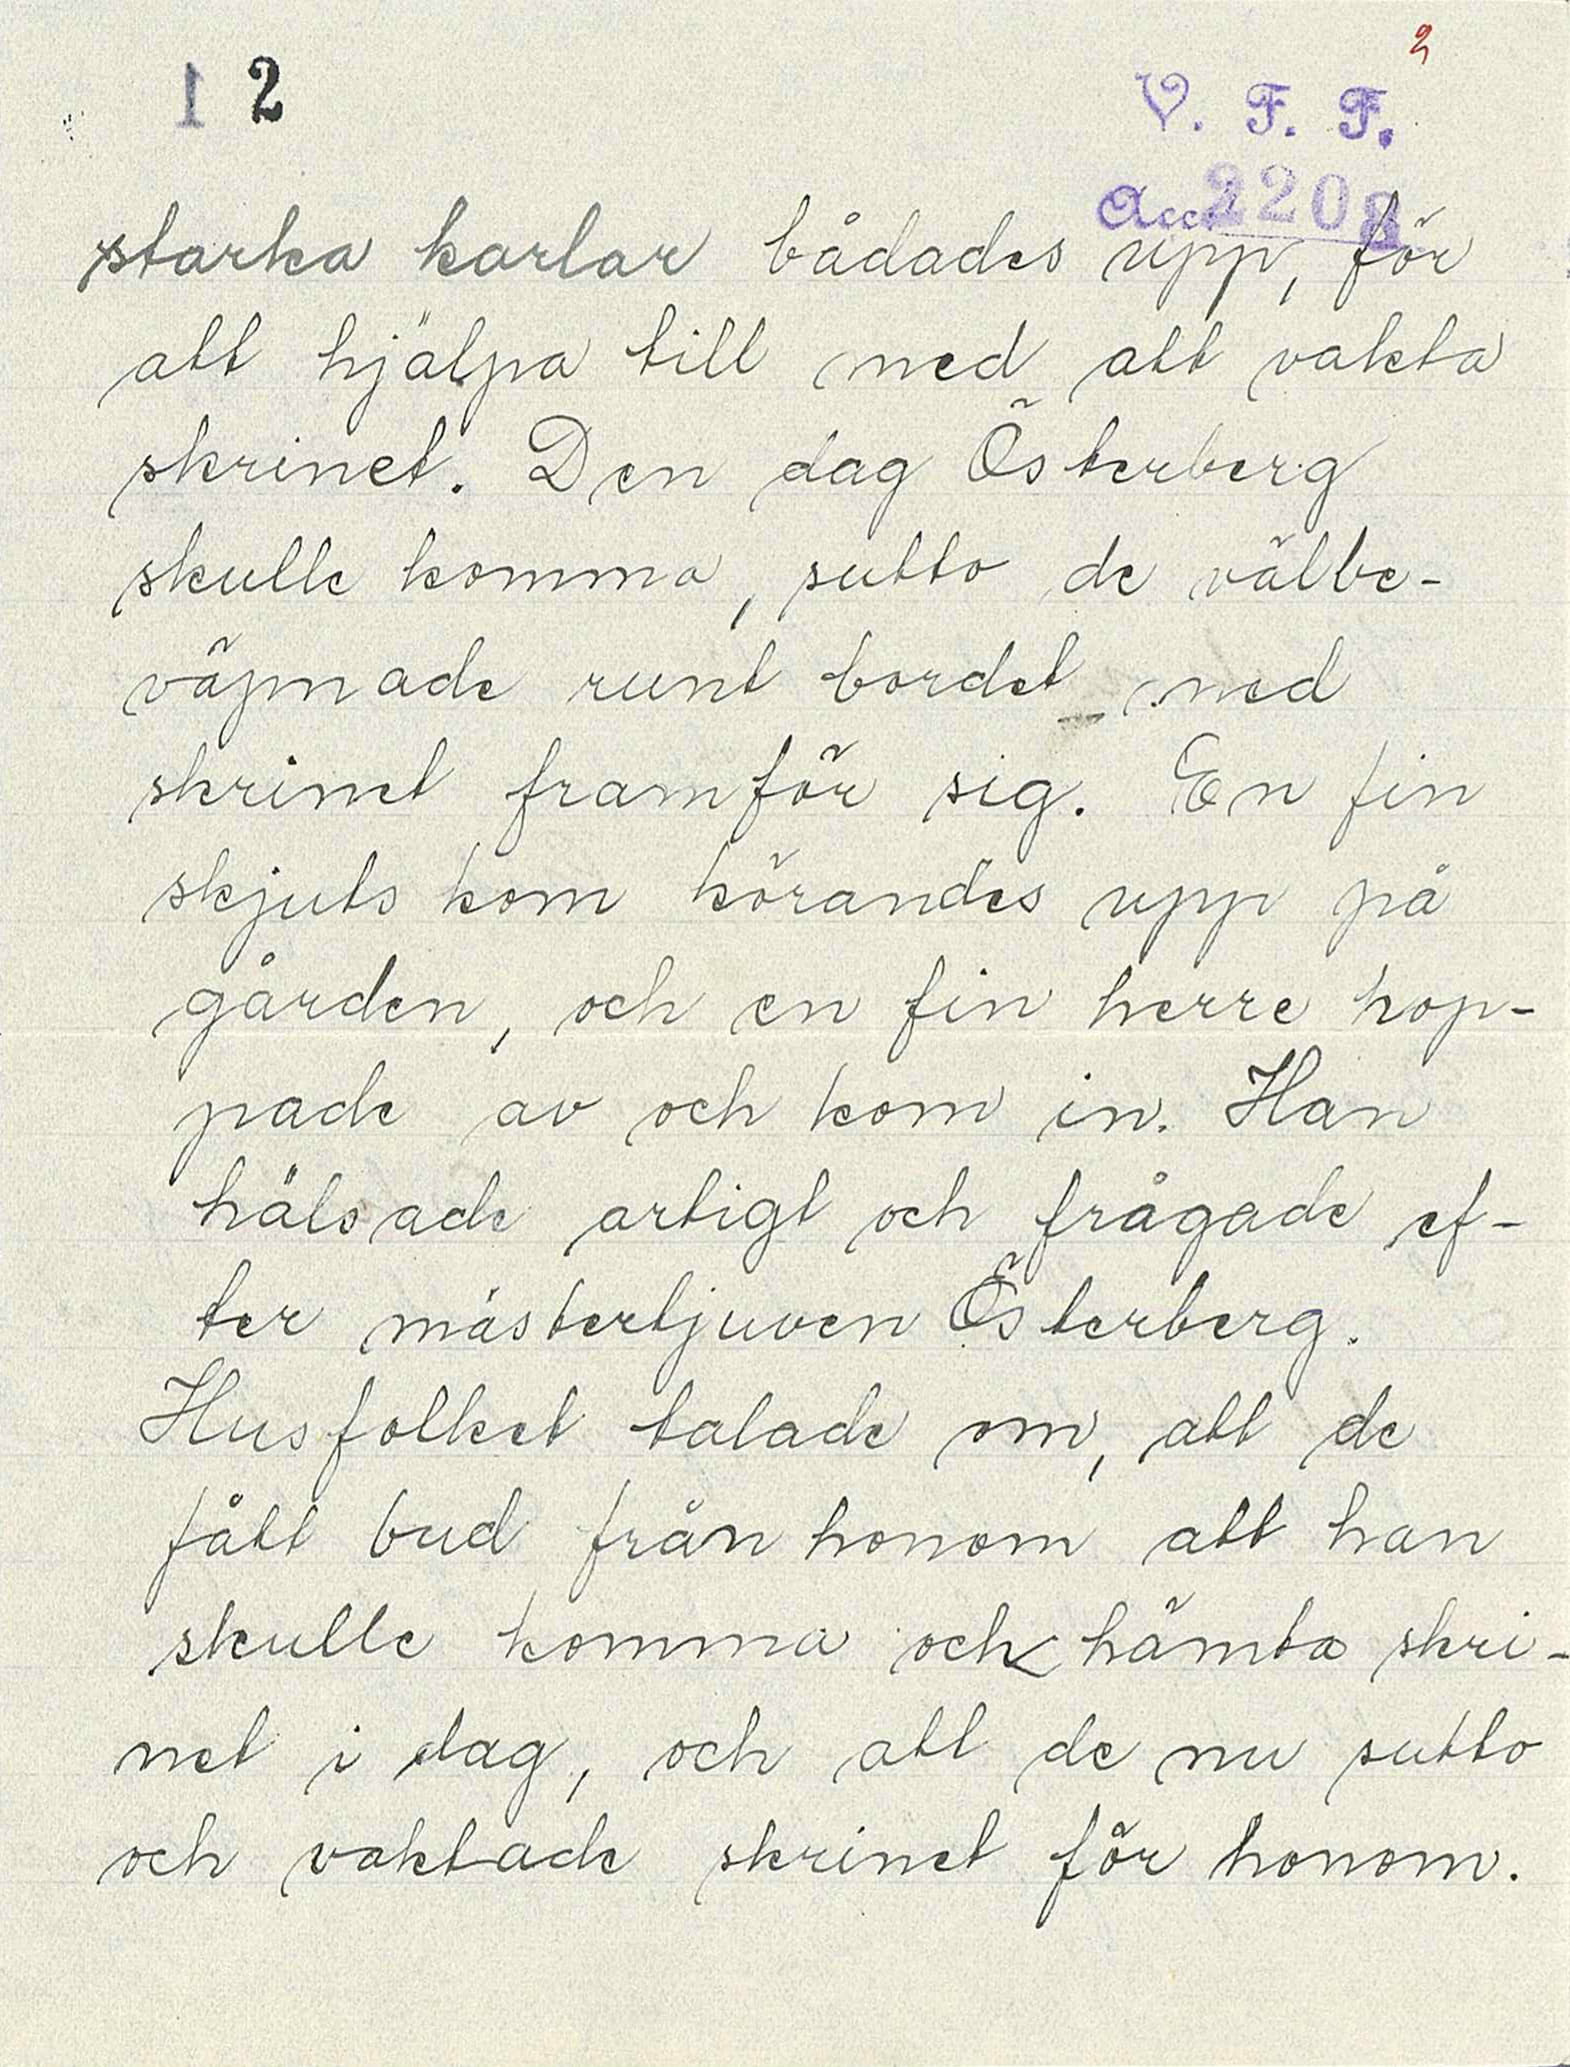 2
1 2
V. F. F.
Acc. 2208
starka karlar bådades upp, för
att hjälpa till med att vakta
skrinet. Den dag Österberg
skulle komma, sutto de välbe-
väpnade runt bordet med
skrinet framför sig. En fin
skjuts kom körandes upp på
gården, och en fin herre hop-
pade av och kom in. Han
hälsade artigt och frågade ef-
ter mästertjuven Österberg.
Husfolket talade om, att de
fått bud från honom att han
skulle komma och hämta skri-
net i dag, och att de nu sutto
och vaktade skrinet för honom.